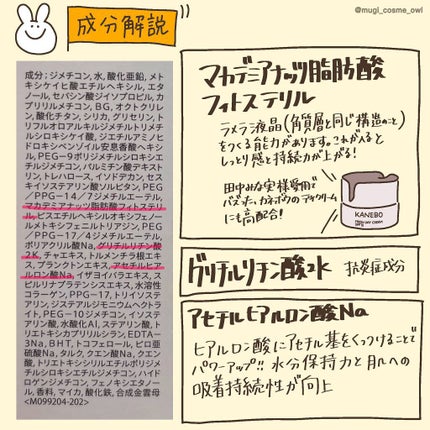 @mugi_cosme_owl
成分解説
成分：ジメチコン、水、酸化亜鉛、メト
キシケイヒ酸エチルヘキシル、エタ
ノール、セバシン酸ジイソプロピル、カ
プリリルメチコン、BG、オクトクリレ
ン、酸化チタン、シリカ、グリセリン、ト
リフルオロアルキルジメチルトリメチ
ルシロキシケイ酸、ジエチルアミノヒ
ドロキシベンゾイル安息香酸ヘキシ
ル、PEG－9ポリジメチルシロキシエ
チルジメチコン、パルミチン酸デキスト
リン、トレハロース、イソドデカン、セス
キイソステアリン酸ソルビタン、PEG
／PPG－14／7ジメチルエーテル、
マカデミアナッツ脂肪酸フィトステリ
ル、ビスエチルヘキシルオキシフェノ
ールメトキシフェニルトリアジン、PEG
／PPG－17／4ジメチルエーテル、
ポリアクリル酸Na、グリチルリチン酸
2K、チャエキス、トルメンチラ根エキ
ス、プランクトンエキス、アセチルヒア
ルロン酸Na、イザヨイバラエキス、ス
ピルリナプラテンシスエキス、水溶性
コラーゲン、PPG－17、トリイソステ
アリン
ジステアルジモニウムヘクトラ
イト、PEG－10ジメチコン、イソステア
リン酸、水酸化Al、ステアリン酸、ト
リエトキシカプリリルシラン、EDTA－
3Na、BHT、トコフェロール、ピロ亜
硫酸Na、タルク、クエン酸Na、クエン
酸、トリエトキシシリルエチルポリジメ
チルシロキシエチルジメチコン、ハイド
ロゲンジメチコン、フェノキシエタノー
ル、香料、マイカ、酸化鉄、合成金雲母
<M099204-202>
マカデミアナッツ脂肪酸
フィトステリル
ラメラ液晶(角質層と同じ構造のこと)
をつくる能力があります。これが入ると
しっとり感と持続力が上がる!
田中みな実様愛用で
バズった、カネボウのデイクリーム
にも高配合!
KANEBO
グリチルリチン酸2K 抗炎症成分
アセチルヒアルロン酸Na
ヒアルロン酸にアセチル基をくっつけることで
パワーアップ!! 水分保持力と肌への
吸着持続性が向上